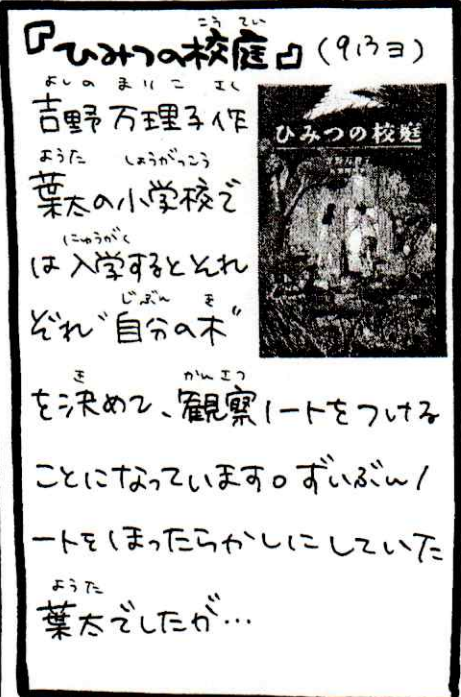 『ひみつの校庭』(913ヨ)
吉野万理子作
葉太の小学校で
は入学するとそれ
ぞれ“自分の木”
を決めて、観察ノートをつける
ことになっています。ずいぶんノ
ートをほったらかしにしていた
葉太でしたが…
ひみつの校庭